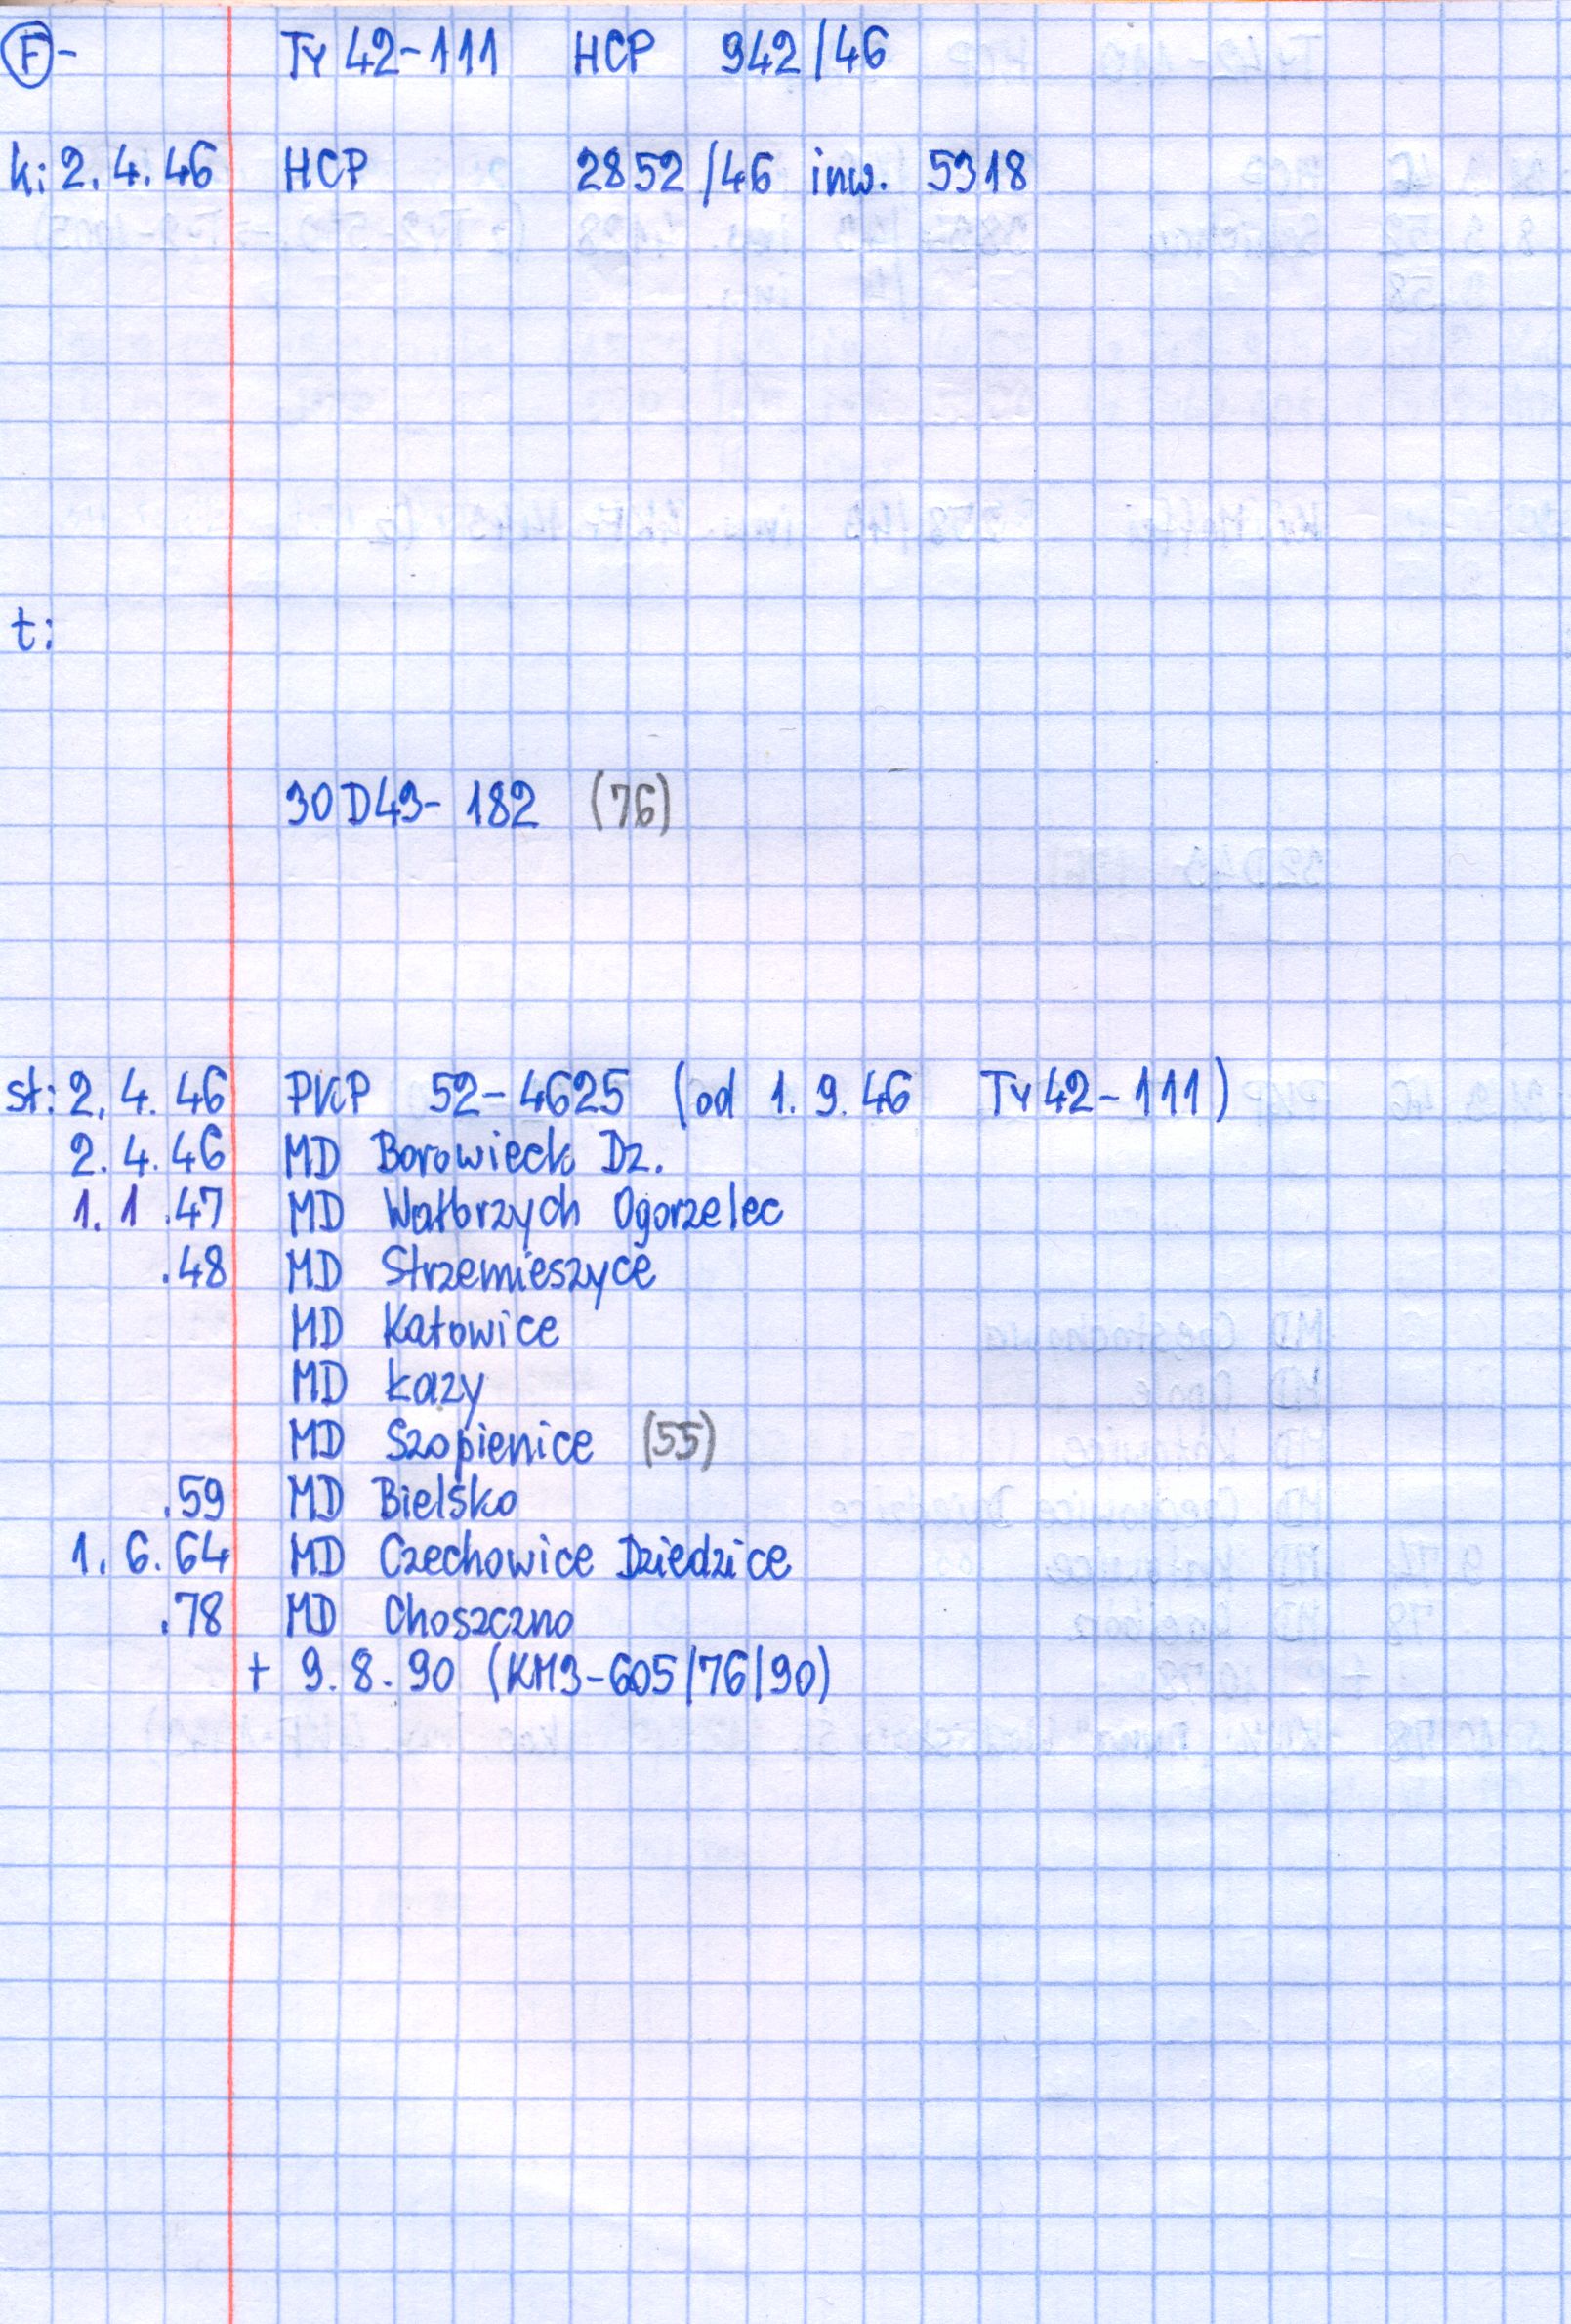 F- Ty 42-111 HCP 942/46
k: 2.4.46 HCP 2852/46 inw. 5318
t:
30D43- 182 (76)
st: 2.4.46 PKP 52-4625 (od 1.9.46 Ty 42-111)
2.4.46 MD Borowieck Dz.
1.1.47 MD Wałbrzych Ogorzelec
.48 MD Strzemieszyce
MD Katowice
MD Łazy
MD Szopienice (55)
.59 MD Bielsko
1.6.64 MD Czechowice Dziedzice
.78 MD Choszczno
+ 9.8.90 (KM3-605/76/90)